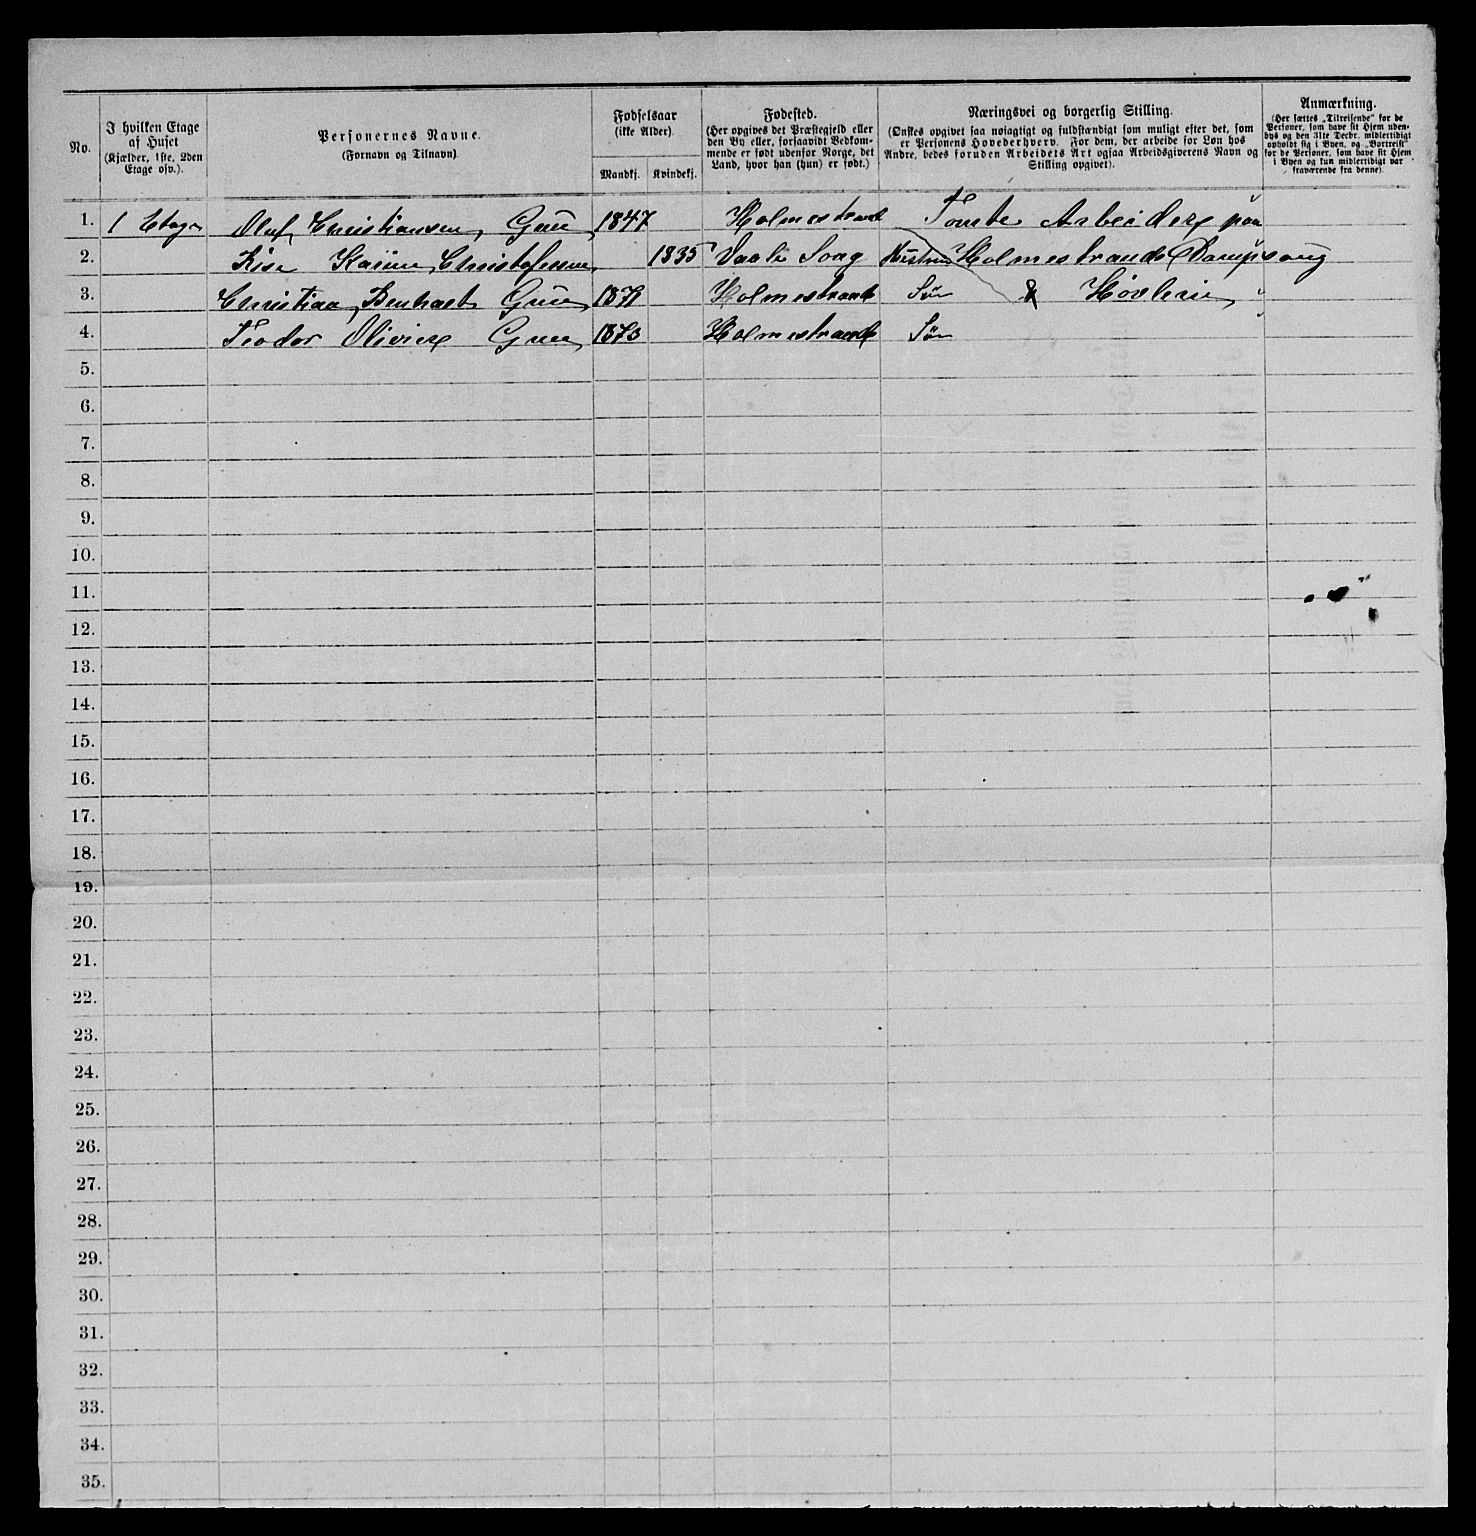 No.
I hvilken Etage
af Huset
(Kjælder, 1ste, 2den
Etage osv.).
Personernes Navne.
(Fornavn og Tilnavn).
Fødselsaar
(ikke Alder).
Mandkj. Kvindekj.
Fødested.
(Her opgives det Præstegjeld eller
den By eller, forsaavidt Vedkom-
mende er født udenfor Norge, det
Land, hvor han (hun) er født.)
Næringsvei og borgerlig Stilling.
(Ønskes opgivet saa nøiagtigt og fuldstændigt som muligt efter det, som
er Personens Hovederhverv. For dem, der arbeide for Løn hos
Andre, bedes foruden Arbeidets Art ogsaa Arbeidsgiverens Navn og
Stilling opgivet).
Anmærkning.
(Her sættes „Tilreisende“ for de
Personer, som have sit Hjem uden-
bys og den 31te Decbr. midlertidigt
opholdt sig i Byen, og „Bortreist“
for de Personer, som have sit Hjem
i Byen og kun midlertidigt var
fraværende fra denne).
1. 1 Etage Oluf Christiansen Grue 1847 Holmestrand Tomte Arbeider paa
2. Lise Karine Christofersen 1835 Vaale Sogn Hustru Holmestrands Dampsaug
3. Christian Benhart Grue 1871 Holmestrand Søn & Høvleri
4. Teodor Oliver Grue 1873 Holmestrand Søn
5.
6.
7.
8.
9.
10.
11.
12.
13.
14.
15.
16.
17.
18.
19.
20.
21.
22.
23.
24.
25.
26.
27.
28.
29.
30.
31.
32.
33.
34.
35.